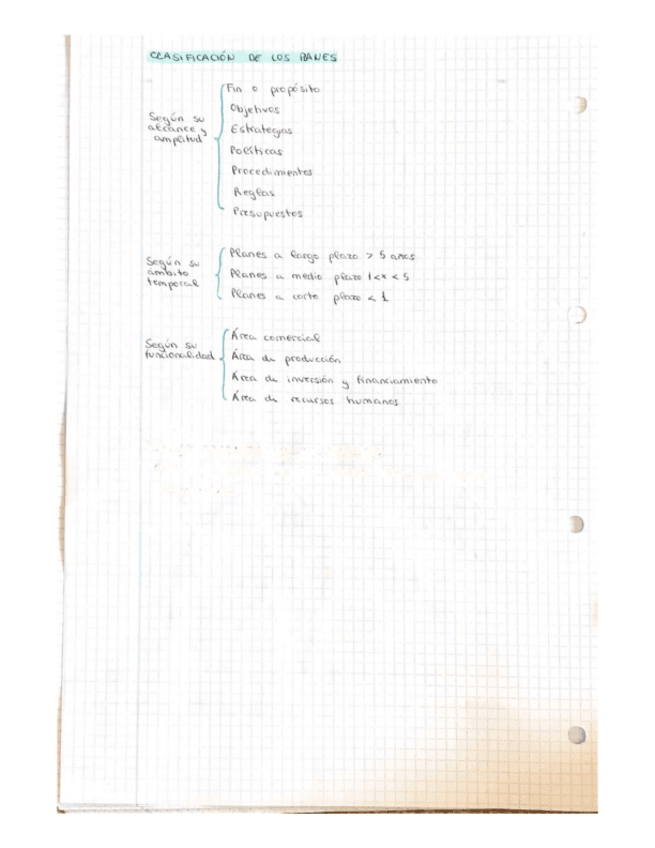 CLASIFICACIÓN DE LOS PANES
Según su
alcance y
amplitud
Fin o propósito
Objetivos
Estrategias
Políticas
Procedimientos
Reglas
Presupuestos
Según su
ámbito
temporal
Planes a largo plazo > 5 años
Planes a medio plazo 1<x<5
Planes a corto plazo < 1
Según su
funcionalidad
Área comercial
Área de producción
Área de inversión y financiamiento
Área de recursos humanos